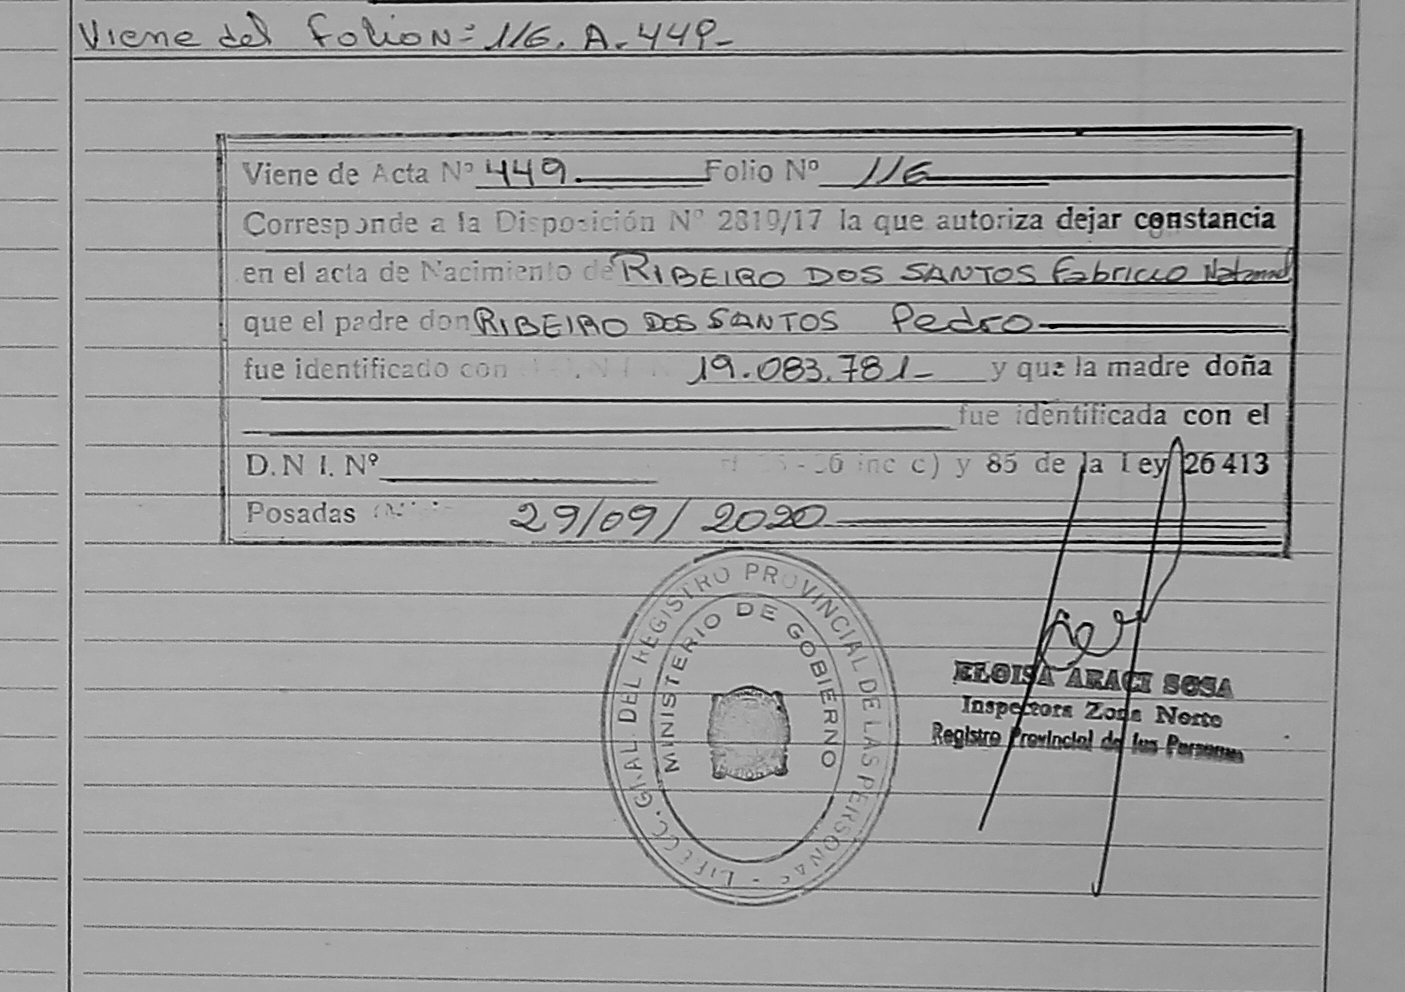 Viene del Folio Nº 116. A-449-
Viene de Acta Nº 449. Folio Nº 116
Corresponde a la Disposición Nº 2819/17 la que autoriza dejar constancia
en el acta de Nacimiento de RIBEIRO DOS SANTOS Fabricio
que el padre don RIBEIRO DOS SANTOS Pedro
fue identificado con D.N.I. Nº 19.083.781- y que la madre doña
fue identificada con el
D.N.I. Nº inc c) y 85 de la Ley 26 413
Posadas 29/09/2020
REGISTRO PROVINCIAL DE LAS PERSONAS
GRAL. DEL
MINISTERIO DE GOBIERNO
ELOISA ARACI SOSA
Inspectora Zona Norte
Registro Provincial de las Personas